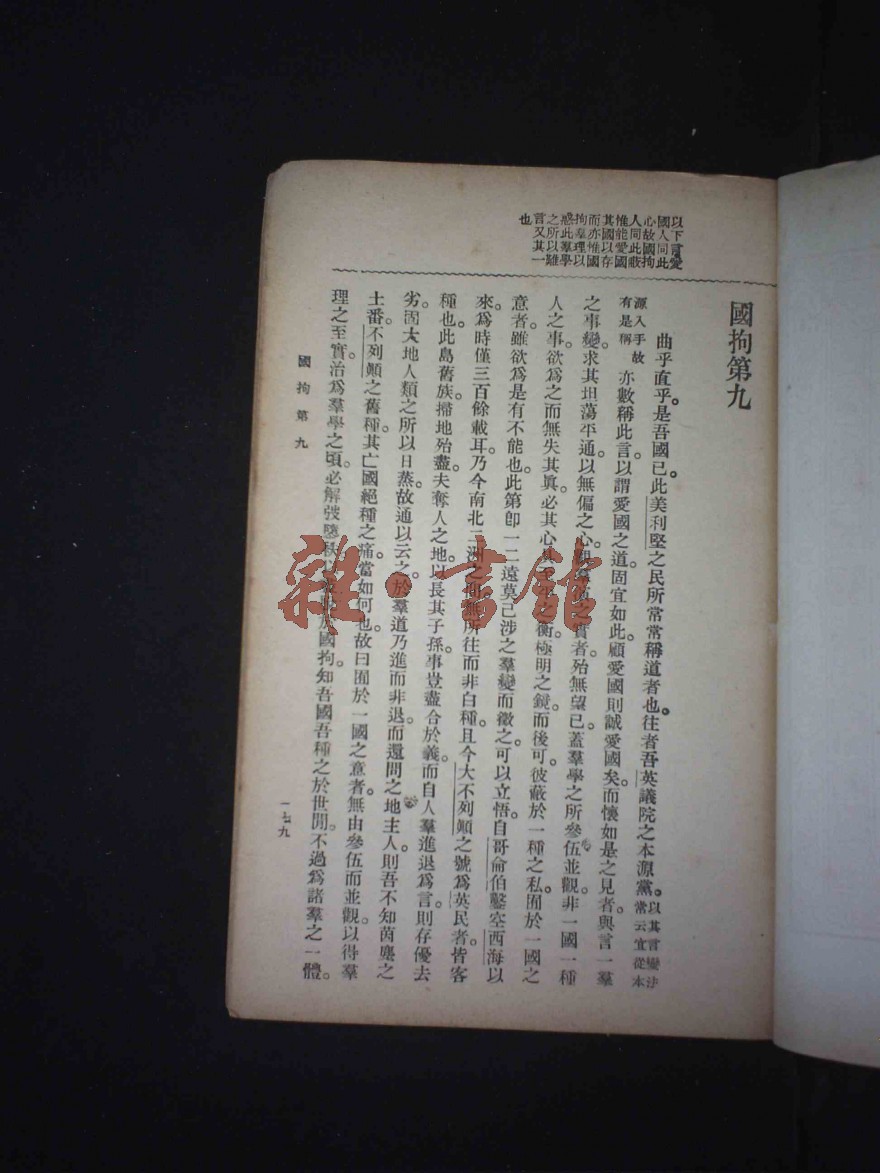 以下言愛
國人同此
心故國拘
人同此蔽
惟能愛國
其國以存
而亦惟國
拘羣理以
惑此羣學
之所以難
言又其一
也
國拘第九
曲乎直乎。是吾國已此美利堅之民所常常稱道者也。往者吾英議院之本源黨。以其言變法常云宜從本
源入手故有是稱亦數稱此言。以謂愛國之道。固宜如此。顧愛國則誠愛國矣。而懷如是之見者。與言一羣
之事變。求其坦蕩平通。以無偏之心。之實者。殆無望已。蓋羣學之所參伍並觀。非一國一種
人之事。欲爲之而無失其眞。必其心衡。極明之鏡。而後可。彼蔽於一種之私。囿於一國之
意者。雖欲爲是有不能也。此第卽一二遠莫己涉之羣變而徵之。可以立悟。自哥侖伯鑿空西海以
來。爲時僅三百餘載耳。乃今南北二洲之間。無所往而非白種。且今大不列顚之號爲英民者。皆客
種也。此島舊族。掃地殆盡。夫奪人之地。以長其子孫。事豈盡合於義。而自人羣進退爲言。則存優去
劣。固大地人類之所以日蒸。故通以云之。於羣道乃進而非退。而還問之地主人。則吾不知茵塵之
土番。不列顚之舊種。其亡國絕種之痛。當如何也。故曰囿於一國之意者。無由參伍而並觀。以得羣
理之至實。治爲羣學之頃。必解弢墮袟。以國拘。知吾國吾種之於世閒。不過爲諸羣之一體。
國拘第九
一七九
雜·書館